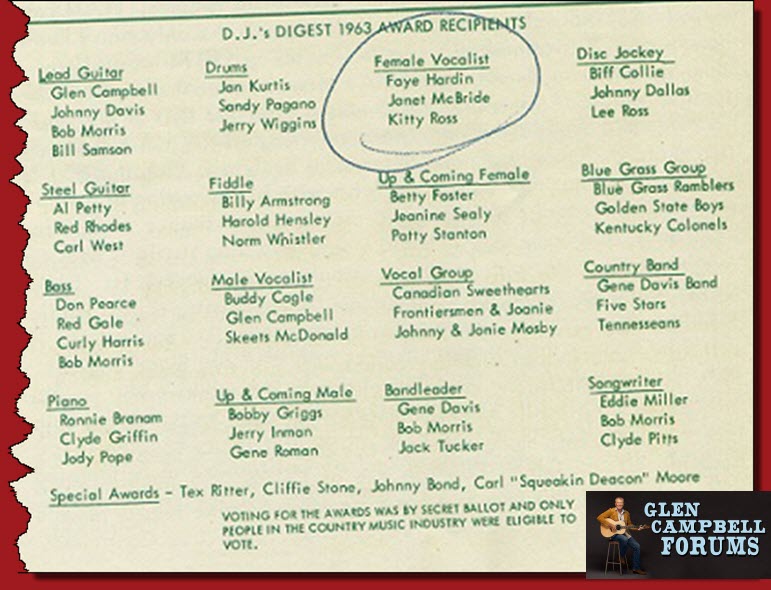 D.J.'s DIGEST 1963 AWARD RECIPIENTS
Lead Guitar
Glen Campbell
Johnny Davis
Bob Morris
Bill Samson
Drums
Jan Kurtis
Sandy Pagano
Jerry Wiggins
Female Vocalist
Faye Hardin
Janet McBride
Kitty Ross
Disc Jockey
Biff Collie
Johnny Dallas
Lee Ross
Steel Guitar
Al Petty
Red Rhodes
Carl West
Fiddle
Billy Armstrong
Harold Hensley
Norm Whistler
Up & Coming Female
Betty Foster
Jeanine Sealy
Patty Stanton
Blue Grass Group
Blue Grass Ramblers
Golden State Boys
Kentucky Colonels
Bass
Don Pearce
Red Gale
Curly Harris
Bob Morris
Male Vocalist
Buddy Cagle
Glen Campbell
Skeets McDonald
Vocal Group
Canadian Sweethearts
Frontiersmen & Joanie
Johnny & Jonie Mosby
Country Band
Gene Davis Band
Five Stars
Tennesseans
Piano
Ronnie Branam
Clyde Griffin
Jody Pope
Up & Coming Male
Bobby Griggs
Jerry Inman
Gene Roman
Bandleader
Gene Davis
Bob Morris
Jack Tucker
Songwriter
Eddie Miller
Bob Morris
Clyde Pitts
Special Awards - Tex Ritter, Cliffie Stone, Johnny Bond, Carl "Squeakin Deacon" Moore
VOTING FOR THE AWARDS WAS BY SECRET BALLOT AND ONLY
PEOPLE IN THE COUNTRY MUSIC INDUSTRY WERE ELIGIBLE TO
VOTE.
GLEN
CAMPBELL
FORUMS